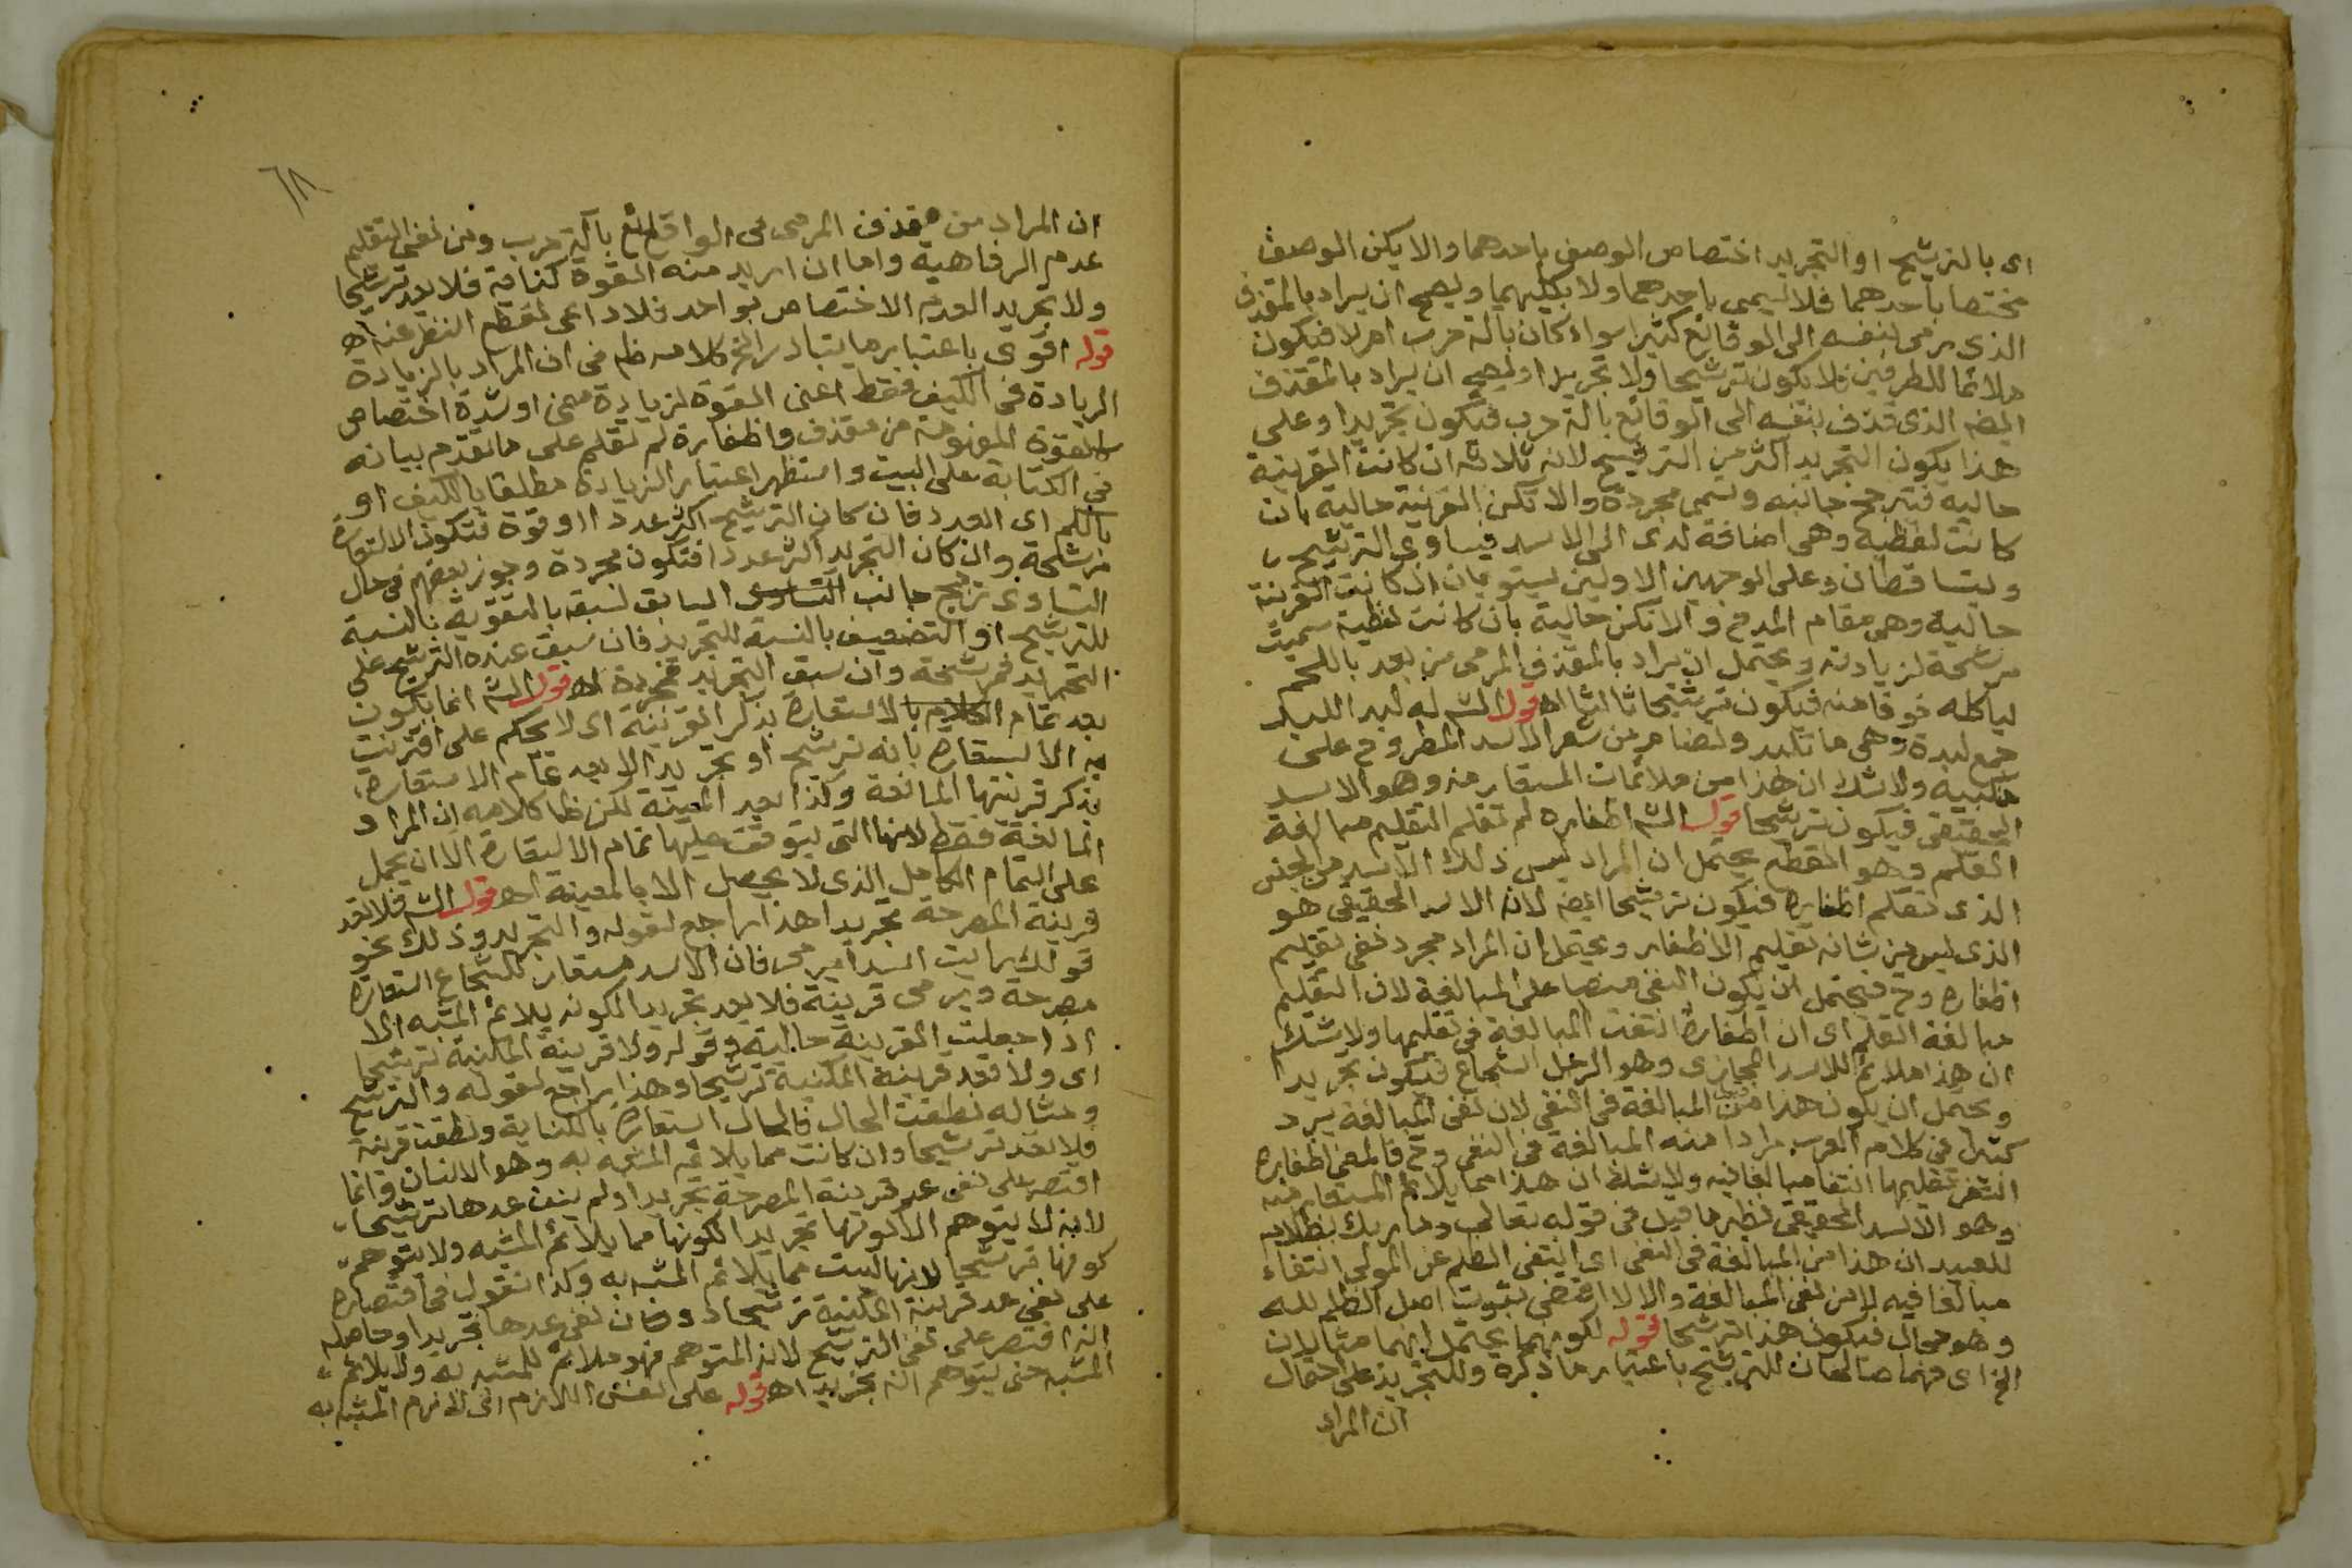 اى بالترشيح او التجريد اختصاص الوصف باحدهما والا يكن الوصف
مختصا باحدهما فلا يسمى باحدهما ولا بكليهما ويصح ان يراد بالمقذف
الذى رمى بنفسه الى الوقائع كثيرا سواء كان بآلة حرب ام لا فيكون
ملائما للطرفين فلا يكون ترشيحا ولا تجريدا ويصح ان يراد بالمقذف
ايضا الذى قذف بنفسه الى الوقائع بالة حرب فيكون تجريدا وعلى
هذا يكون التجريد اكثر من الترشيح لانه ثلاثة ان كانت القرينة
حالية فترجح جانبه وتسمى مجردة والا تكن القرينة حالية بان
كانت لفظية وهى اضافة لدى الى الاسد فيساوى الترشيح
ويتساقطان وعلى الوجهين الاولين يستويان ان كانت القرينة
حالية وهى مقام المدح والا تكن حالية بان كانت لفظية سميت
مرشحة لزيادته ويحتمل ان يراد بالمقذف المرمى من بعد باللحم
لياكله خوفا منه فيكون ترشيحا ثالثا اه قول الش له لبد اللبد
جمع لبدة وهى ما تلبد وتضام من شعر الاسد المطروح على
منكبيه ولا شك ان هذا من ملائمات المستعار منه وهو الاسد
الحقيقى فيكون ترشيحا قول الش اظفاره لم تقلم التقليم مبالغة
القلم وهو القطع يحتمل ان المراد ليس ذلك الاسد من الجنس
الذى تقلم اظفاره فيكون ترشيحا ايضا لان الاسد الحقيقى هو
الذى ليس من شانه تقليم الاظفار ويحتمل ان المراد مجرد نفى تقليم
اظفاره وح فيحتمل ان يكون النفى منصبا على المبالغة لان التقليم
مبالغة القلم اى ان اظفاره انتفت المبالغة فى تقليمها ولا شك
ان هذا ملائم للاسد المجازى وهو الرجل الشجاع فيكون تجريدا
ويحتمل ان يكون هذا من المبالغة فى النفى لان نفى المبالغة يرد
كثيرا فى كلام العرب مرادا منه المبالغة فى النفى وح فالمعنى اظفاره
انتفى تقليمها انتفاء مبالغا فيه ولا شك ان هذا مما يلائم المستعار منه
وهو الاسد الحقيقى نظير ما قيل فى قوله تعالى وما ربك بظلام
للعبيد ان هذا من المبالغة فى النفى اى انتفى الظلم عن المولى انتفاء
مبالغا فيه لا من نفى المبالغة والا لاقتضى ثبوت اصل الظلم لله
وهو محال فيكون هذا ترشيحا قوله لكونهما يحتمل انهما مثالان
الخ اى فهما صالحان للترشيح باعتبار ما ذكره وللتجريد على احتمال
ان المراد
٦٨
ان المراد من مقذف المرمى فى الوقائع بآلة حرب ومن نفى التقليم
عدم الرفاهية واما ان اريد منه القوة كناية فلا يعد ترشيحا
ولا تجريدا لعدم الاختصاص بواحد فلا داعى لقطع النظر عنه اه
قوله اقوى باعتبار ما يتبادر الخ كلامه ظم فى ان المراد بالزيادة
الزيادة فى الكيف فقط اعنى القوة لزيادة معنى او شدة اختصاص
كالقوة المفهومة من مقذف واظفاره لم تقلم على ما تقدم بيانه
فى الكتابة على البيت واستظهر اعتبار الزيادة مطلقا بالكيف او
بالكم اى العدد فان كان الترشيح اكثر عددا او قوة فتكون الاستعارة
مرشحة وان كان التجريد اكثر عددا فتكون مجردة وجوز بعضهم فى حال
التساوى ترجيح جانب التساوى السابق لسبقه بالتقوية بالنسبة
للترشيح او التضعيف بالنسبة للتجريد فان سبق عنده الترشيح على
التجريد فمرشحة وان سبق التجريد فمجردة اه قول الش انما يكون
بعد تمام الكلام بالاستعارة بذكر القرينة اى لا يحكم على اقترنت
به الاستعارة بانه ترشيح او تجريد الا بعد تمام الاستعارة
بذكر قرينتها المانعة وكذا بعد المعينة لكن ظا كلامه ان المراد
المانعة فقط لانها التى يتوقف عليها تمام الاستعارة الا ان يحمل
على التمام الكامل الذى لا يحصل الا بالمعينة اه قول الش فلا تعد
قرينة المصرحة تجريدا هذا راجع لقوله والتجريد وذلك نحو
قولك رايت اسدا يرمى فان الاسد مستعار للشجاع استعارة
مصرحة ويرمى قرينة فلا يعد تجريدا لكونه يلائم المشبه الا
اذا جعلت القرينة حالية وقوله ولا قرينة المكنية ترشيحا
اى ولا تعد قرينة المكنية ترشيحا وهذا راجع لقوله والترشيح
ومثاله نطقت الحال فالحال استعارة بالكناية ونطقت قرينة
فلا تعد ترشيحا وان كانت مما يلائم المشبه به وهو الانسان وانما
اقتصر على نفى عد قرينة المصرحة تجريدا ولم ينف عدها ترشيحا
لانه لا يتوهم الا كونها تجريدا لكونها مما يلائم المشبه ولا يتوهم
كونها ترشيحا لانها ليست مما يلائم المشبه به وكذا نقول فى اقتصاره
على نفى عد قرينة المكنية ترشيحا دون نفى عدها تجريدا وحاصله
انه اقتصر على نفى الترشيح لانه المتوهم فهو ملائم للمشبه به ولا يلائم
المشبه حتى يتوهم انه تجريد اه قوله على نفس اللازم اى لازم المشبه به